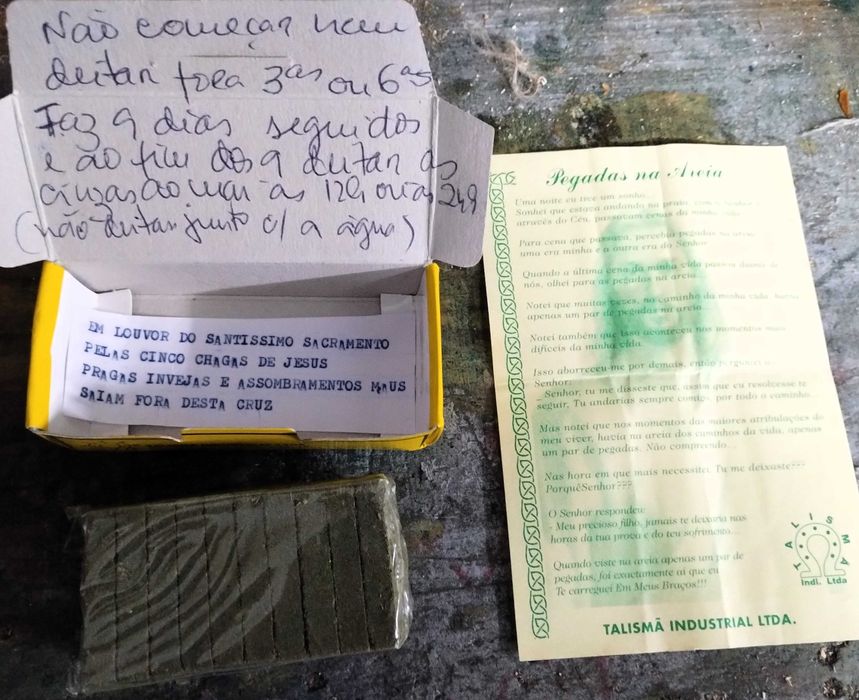 Não começar nem
deitar fora 3ªs ou 6ªs
Faz 9 dias seguidos
e ao fim dos 9 deitar as
cinzas ao mar às 12h ou às 24h
(não deitar junto c/ a água)
EM LOUVOR DO SANTISSIMO SACRAMENTO
PELAS CINCO CHAGAS DE JESUS
PRAGAS INVEJAS E ASSOMBRAMENTOS MAUS
SAIAM FORA DESTA CRUZ
Pegadas na Areia
Uma noite eu tive um sonho...
Sonhei que estava andando na praia, com o Senhor e
através do Céu, passavam cenas da minha vida.
Para cena que passava, percebia pegadas na areia
uma era minha e a outra era do Senhor.
Quando a última cena da minha vida passou diante de
nós, olhei para as pegadas na areia...
Notei que muitas vezes, no caminho da minha vida, havia
apenas um par de pegadas na areia...
Notei também que isso aconteceu nos momentos mais
difíceis da minha vida.
Isso aborreceu-me por demais, então perguntei ao
Senhor:
- Senhor, tu me disseste que, assim que eu resolvesse te
seguir, Tu andarias sempre comigo, por todo a caminho...
Mas notei que nos momentos das maiores atribulações do
meu viver, havia na areia dos caminhos da vida, apenas
um par de pegadas. Não compreendo...
Nas hora em que mais necessitei, Tu me deixaste???
PorquêSenhor???
O Senhor respondeu:
- Meu precioso filho, jamais te deixaria nas
horas da tua prova e do teu sofrimento...
Quando viste na areia apenas um par de
pegadas, foi exactamente aí que eu
Te carreguei Em Meus Braços!!!
TALISMÃ
Indl. Ltda
TALISMÃ INDUSTRIAL LTDA.